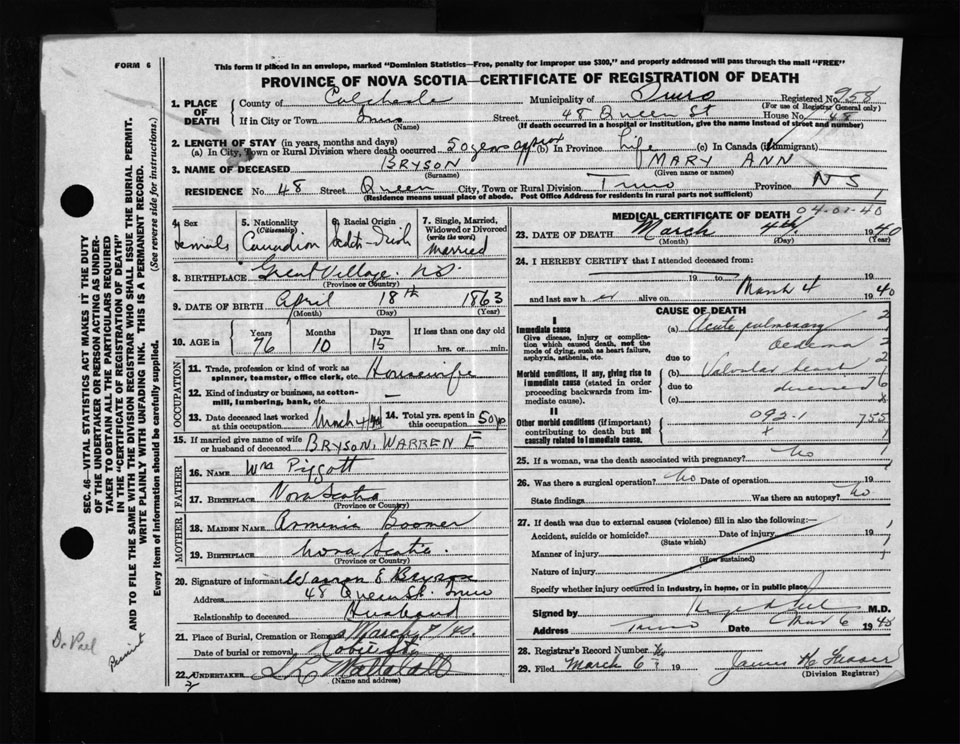 FORM 6
This form if placed in an envelope, marked "Dominion Statistics—Free, penalty for improper use $300," and properly addressed will pass through the mail "FREE"
PROVINCE OF NOVA SCOTIA—CERTIFICATE OF REGISTRATION OF DEATH
SEC. 46—VITAL STATISTICS ACT MAKES IT THE DUTY
OF THE UNDERTAKER OR PERSON ACTING AS UNDER-
TAKER TO OBTAIN ALL THE PARTICULARS REQUIRED
IN THE "CERTIFICATE OF REGISTRATION OF DEATH"
AND TO FILE THE SAME WITH THE DIVISION REGISTRAR WHO SHALL ISSUE THE BURIAL PERMIT.
WRITE PLAINLY WITH UNFADING INK. THIS IS A PERMANENT RECORD.
Every item of Information should be carefully supplied. (See reverse side for instructions.)
1. PLACE OF DEATH
County of Colchester Municipality of Truro Registered No. 958
(For use of Registrar General only)
If in City or Town Truro Street 48 Queen St House No. 48
(Name) (If death occurred in a hospital or institution, give the name instead of street and number)
2. LENGTH OF STAY (in years, months and days)
(a) In City, Town or Rural Division where death occurred 50 years approx (b) In Province Life (c) In Canada (if immigrant)
3. NAME OF DECEASED BRYSON MARY ANN
(Surname) (Given name or names)
RESIDENCE No. 48 Street Queen City, Town or Rural Division Truro Province N S
(Residence means usual place of abode. Post Office Address for residents in rural parts not sufficient)
4. Sex Female
5. Nationality (Citizenship) Canadian
6. Racial Origin Scotch-Irish
7. Single, Married, Widowed or Divorced (write the word) Married
8. BIRTHPLACE Great Village. N.S.
(Province or Country)
9. DATE OF BIRTH April 18th 1863
(Month) (Day) (Year)
10. AGE in Years 76 Months 10 Days 15 If less than one day old
hrs. or min.
OCCUPATION
11. Trade, profession or kind of work as spinner, teamster, office clerk, etc. Housewife
12. Kind of industry or business, as cotton-mill, lumbering, bank, etc. —
13. Date deceased last worked at this occupation March 4/40
14. Total yrs. spent in this occupation 50
15. If married give name of wife or husband of deceased BRYSON, WARREN E
FATHER
16. NAME Wm Piggott
17. BIRTHPLACE Nova Scotia
(Province or Country)
MOTHER
18. MAIDEN NAME Armenia Boomer
19. BIRTHPLACE Nova Scotia
(Province or Country)
20. Signature of informant Warren E Bryson
Address 48 Queen St. Truro
Relationship to deceased Husband
21. Place of Burial, Cremation or Removal
Date of burial or removal
22. UNDERTAKER
(Name and address)
MEDICAL CERTIFICATE OF DEATH 04-01-40
23. DATE OF DEATH March 4th 1940
(Month) (Day) (Year)
24. I HEREBY CERTIFY that I attended deceased from:
19 to March 4 1940
and last saw her alive on 19
CAUSE OF DEATH
I
Immediate cause
Give disease, injury or complication which caused death, not the mode of dying, such as heart failure, asphyxia, asthenia, etc.
(a) Acute pulmonary oedema
due to
Morbid conditions, if any, giving rise to immediate cause (stated in order proceeding backwards from immediate cause).
(b) Valvular heart disease
due to
(c)
II
Other morbid conditions (if important) contributing to death but not causally related to immediate cause.
092-1
755
25. If a woman, was the death associated with pregnancy? No
26. Was there a surgical operation? No Date of operation
State findings Was there an autopsy? No
27. If death was due to external causes (violence) fill in also the following:—
Accident, suicide or homicide? Date of injury 19
(State which)
Manner of injury
(How sustained)
Nature of injury
Specify whether injury occurred in Industry, in home, or in public place
Signed by M.D.
Address Truro Date Mar 6 1940
28. Registrar's Record Number
29. Filed March 6 19
(Division Registrar)